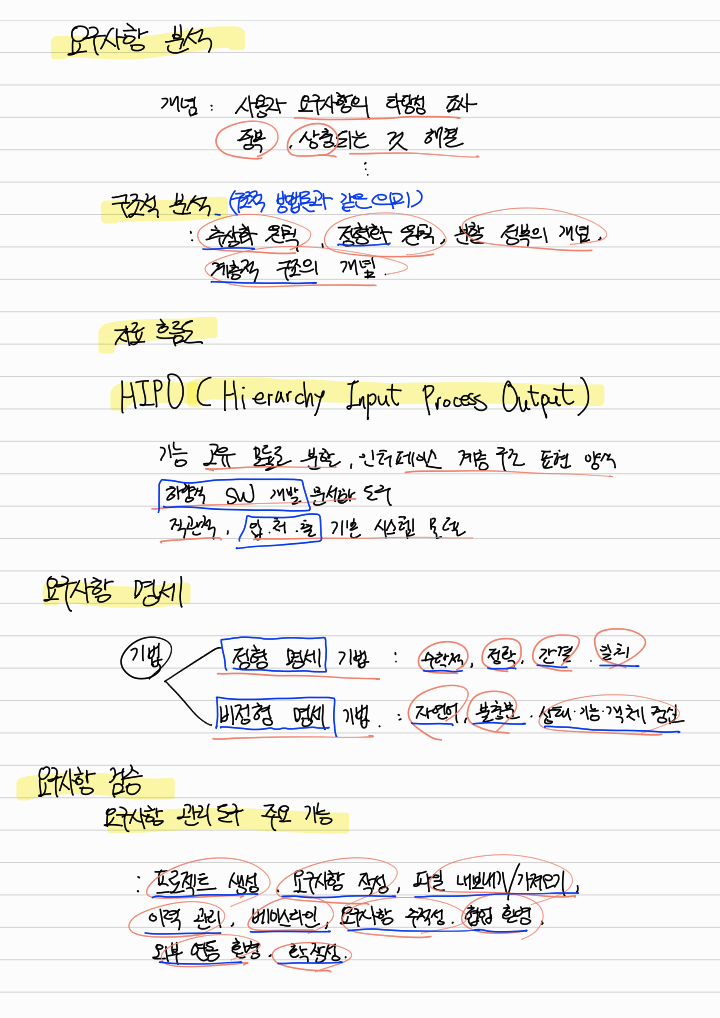 요구사항 분석
개념 : 사용자 요구사항의 타당성 조사
중복, 상충되는 것 해결
⋮
구조적 분석 (구조적 방법론과 같은 의미)
: 추상화 원칙, 정형화 원칙, 분할 정복의 개념.
계층적 구조의 개념.
자료 흐름도
HIPO ( Hierarchy Input Process Output )
기능 고유 모듈로 분할, 인터페이스 계층 구조 표현 양식
하향식 SW 개발 문서화 도구
직관적, 입·처·출 기본 시스템 모델
요구사항 명세
기법
정형 명세 기법 : 수학적, 정확, 간결, 일치
비정형 명세 기법. : 자연어, 불충분, 상태·기능·객체 중심
요구사항 검증
요구사항 관리 도구 주요 기능
: 프로젝트 생성, 요구사항 작성, 파일 내보내기/가져오기,
이력 관리, 베이스라인, 요구사항 추적성. 협업 환경.
외부 연동 환경. 확장성.